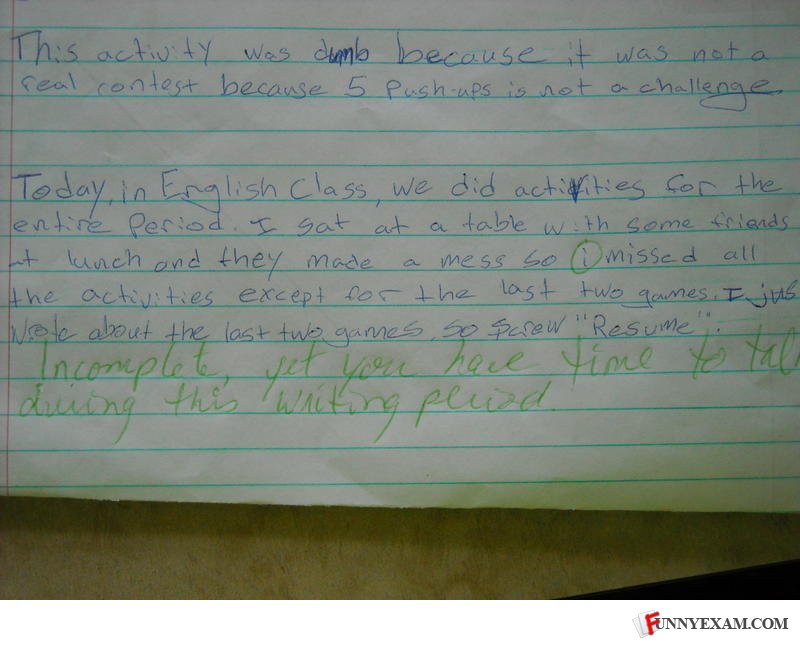 This activity was dumb because it was not a
real contest because 5 push-ups is not a challenge.
Today, in English class, we did activities for the
entire period. I sat at a table with some friends
at lunch and they made a mess so i missed all
the activities except for the last two games. I jus
wrote about the last two games, so screw "Resume".
Incomplete, yet you have time to tal
during this writing period.
FUNNYEXAM.COM